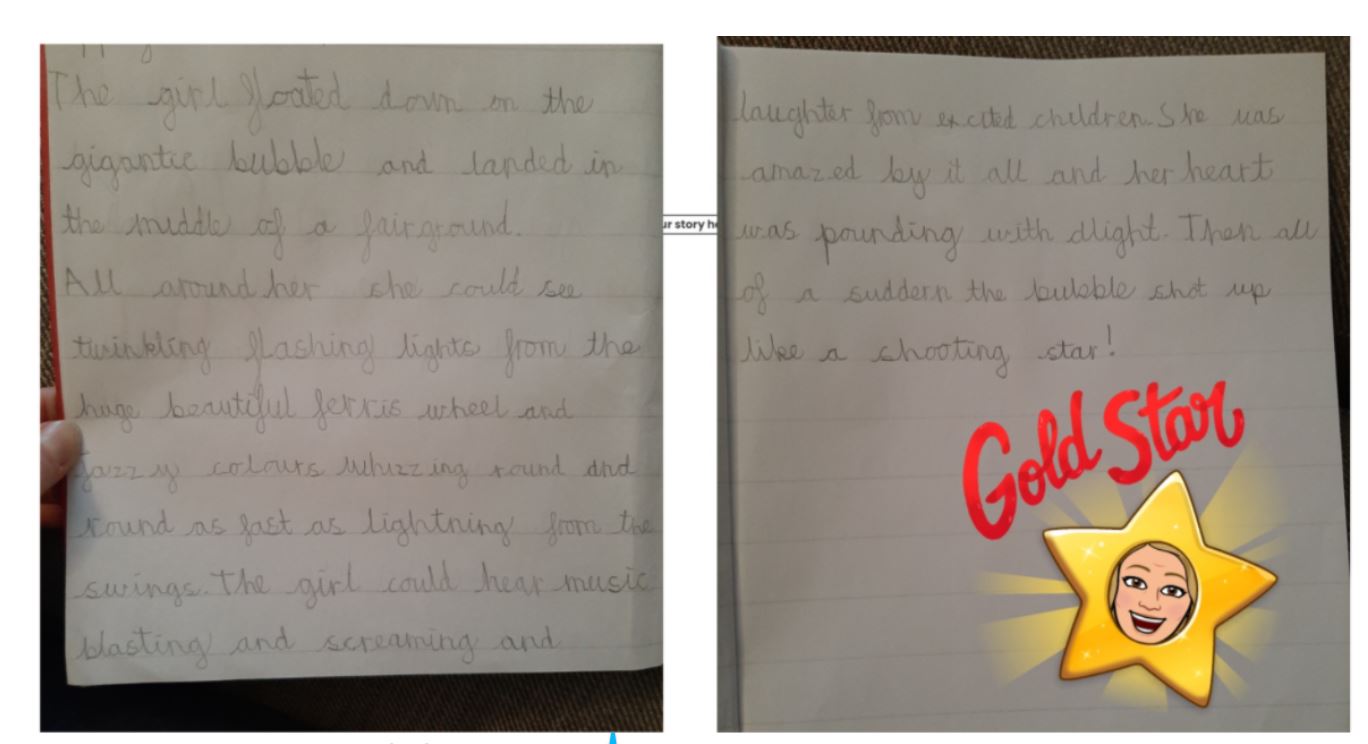 The girl floated down on the
gigantic bubble and landed in
the middle of a fairground.
All around her she could see
twinkling flashing lights from the
huge beautiful ferris wheel and
jazzy colours whizzing round and
round as fast as lightning from the
swings. The girl could hear music
blasting and screaming and
ur story he
laughter from excited children. She was
amazed by it all and her heart
was pounding with dlight. Then all
of a suddern the bubble shot up
like a shooting star!
Gold Star